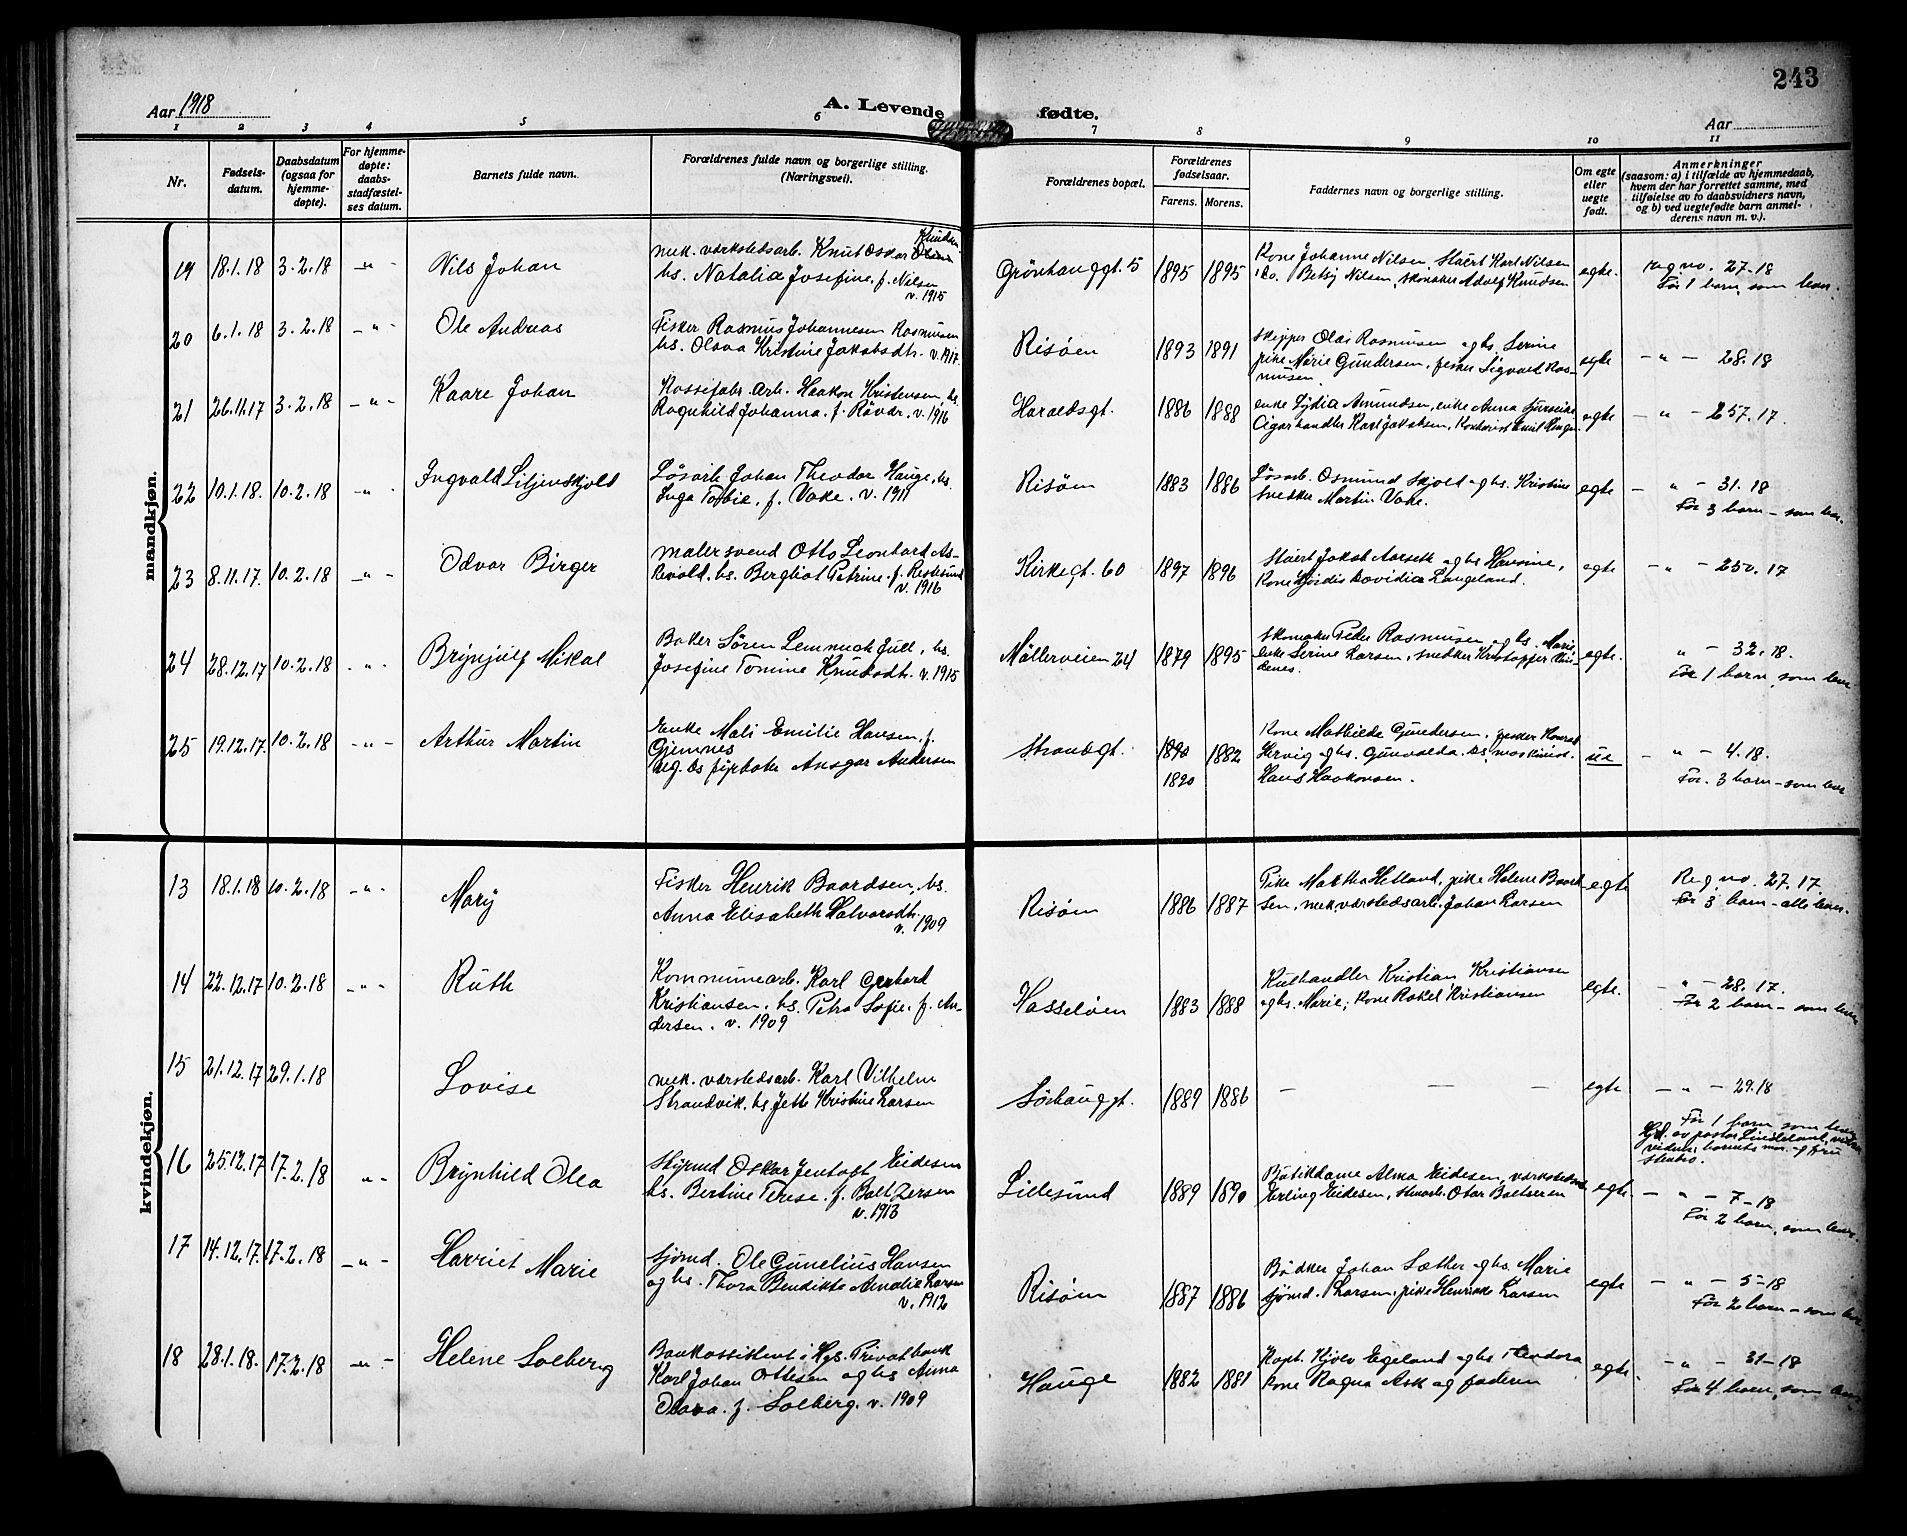 243
Aar 1918
A. Levende fødte.
Aar
1 2 3 4 5 6 7 8 9 10 11
Nr.
Fødselsdatum.
Daabsdatum (ogsaa for hjemmedøpte).
For hjemmedøpte: daabsstadfæstelses datum.
Barnets fulde navn.
Forældrenes fulde navn og borgerlige stilling.
(Næringsvei).
Forældrenes bopæl.
Forældrenes fødselsaar.
Farens. Morens.
Faddernes navn og borgerlige stilling.
Om egte eller uegte født.
Anmerkninger
(saasom: a) i tilfælde av hjemmedaab,
hvem der har forrettet samme, med
tilføielse av to daabsvidners navn,
og b) ved uegtefødte barn anmelderens navn m. v.).
mandkjøn.
19 18.1.18 3.2.18 -"- Nils Johan
mek. værkstedsarb. Knut Oskar Knudsen
hs. Natalia Josefine, f. Nilsen
v. 1915
Grönhauggt. 5 1895 1895
Kone Johanne Nilsen, Karl Nilsen
do. Betsy Nilsen, skomaker Adolf Knudsen
egte. reg no. 27-18
Før 1 barn, som lever.
20 6.1.18 3.2.18 -"- Ole Andreas
Fisker Rasmus Johannesen Rasmussen
hs. Olava Kristine Jakobsdtr. v. 1917
Risøen 1893 1891
Skipper Olai Rasmussen og hs. Serine
pike Marie Gundersen, fisker Sigvald Rasmussen
egte -"- 28.18
21 26.11.17 3.2.18 -"- Kaare Johan
Kassefabr. arb. Haakon Kristensen, hs.
Ragnhild Johanna. f. Røvær. v. 1916
Haraldsgt. 1886 1888
enke Lydia Amundsen, enke Anna
Cigarhandler Karl Jakobsen, Kontorist
egte -"- 257.17.
22 10.1.18. 10.2.18 -"- Ingvald Liljenskjold
Løsarb. Johan Theodor Hauge, hs.
Inga Tobie, f. Vake. v. 1911
Risøen 1883 1886
Løsarb. Osmund Skjold og hs. Kristine
snedker Martin Vake.
egte -"- 31.18
Før 3 barn - som lev.
23 8.11.17. 10.2.18 -"- Odvar Birger
malersvend Otto Leonhard Asrevold. hs. Bergliot Petrine. f. Restesund
v. 1916
Kirkegt. 60 1897 1896
Jakob Aarseth og hs. Hansine,
Kone Hjørdis Davidia Langeland.
egte -"- 250.17
24 28.12.17 10.2.18 -"- Brynjulf Mikal
Baker Søren Lemmich Juel, hs.
Josefine Tomine Knutsdtr. v. 1915
Møllerveien 24 1879 1895
Skomaker Peder Rasmussen og hs. Marie,
enke Serine Larsen, snedker Kristoffer
egte. " - 32.18.
Før 1 barn, som lever
25 19.12.17. 10.2.18 -"- Arthur Martin
Enke Mali Emilie Hansen, f.
Gjemnes
ug. ds fyrbøter Ansgar Andersen
Strandgt. 1890 1882
1890
Kone Mathilde Gundersen, fisker Konrad
Hervig og hs. Gunvalda. ds, maskinist
Hans Haakonsen.
ue - " - 4.18.
Før. 3 barn - som lever
kvindekjøn.
13 18.1.18 10.2.18 -"- Mary
Fisker Henrik Baardsen, hs.
Anna Elisabeth Halvorsdtr.
v. 1909
Risøen 1886 1887
Pike Martha Helland, pike Helene Baardsen, mek. værkstedsarb. Johan Larsen
egte Reg no. 27.17.
Før 3 barn - alle lever.
14 22.12.17 10.2.18 -"- Ruth
Kommunearb. Karl Gerhard
Kristiansen, hs. Petra Sofie. f. Andersen. v. 1909
Hasseløen 1883 1888
Kulhandler Kristian Kristiansen
og hs. Marie; kone Rakel Kristiansen
egte. -"- 28.17.
Før 2 barn - som lever
15 21.12.17 29.1.18 Lovise
mek. værkstedsarb. Karl Vilhelm
Strandvik, hs. Jette Kristine Larsen
Sørhauggt. 1889 1886
- - -
egte -"- 29.18
Før 1 barn, som lever
Hjd. av pastor Lindeland,
16 25.12.17 17.2.18 "- Brynhild Olea
Styrmd Oskar Jentoft Eidesen
hs. Bertine Terese. f. Baltzersen
v. 1913
Lillesund 1889 1890
Butikdame Alma Eidesen,
Erling Eidesen, Otar Baltsersen
egte. -"- 7-18
Før 2 barn, som lever.
17 14.12.17. 17.2.18 -"- Harriet Marie
Sjømd. Ole Cunelius Hansen
og hs. Thora Bendikte Amalie Larsen
v. 1912
Risøen 1887 1886
Bødker Johan Sæther og hs. Marie
sjømd. Larsen, pike Henrikke Larsen
egte -"- 5-18
Før 2 barn - som lev
18 28.1.18. 17.2.18 -"- Helene Solberg
Bankassistent i Hgs. Privatbank
Karl Johan Ottesen og hs Anna
Olava. f. Solberg. v. 1909
Hauge 1882 1881
Kapt. Eigeland og hs Theodora
kone Ragna Ask og faderen
egte. -"- 31-18
Før 4 barn, som lever